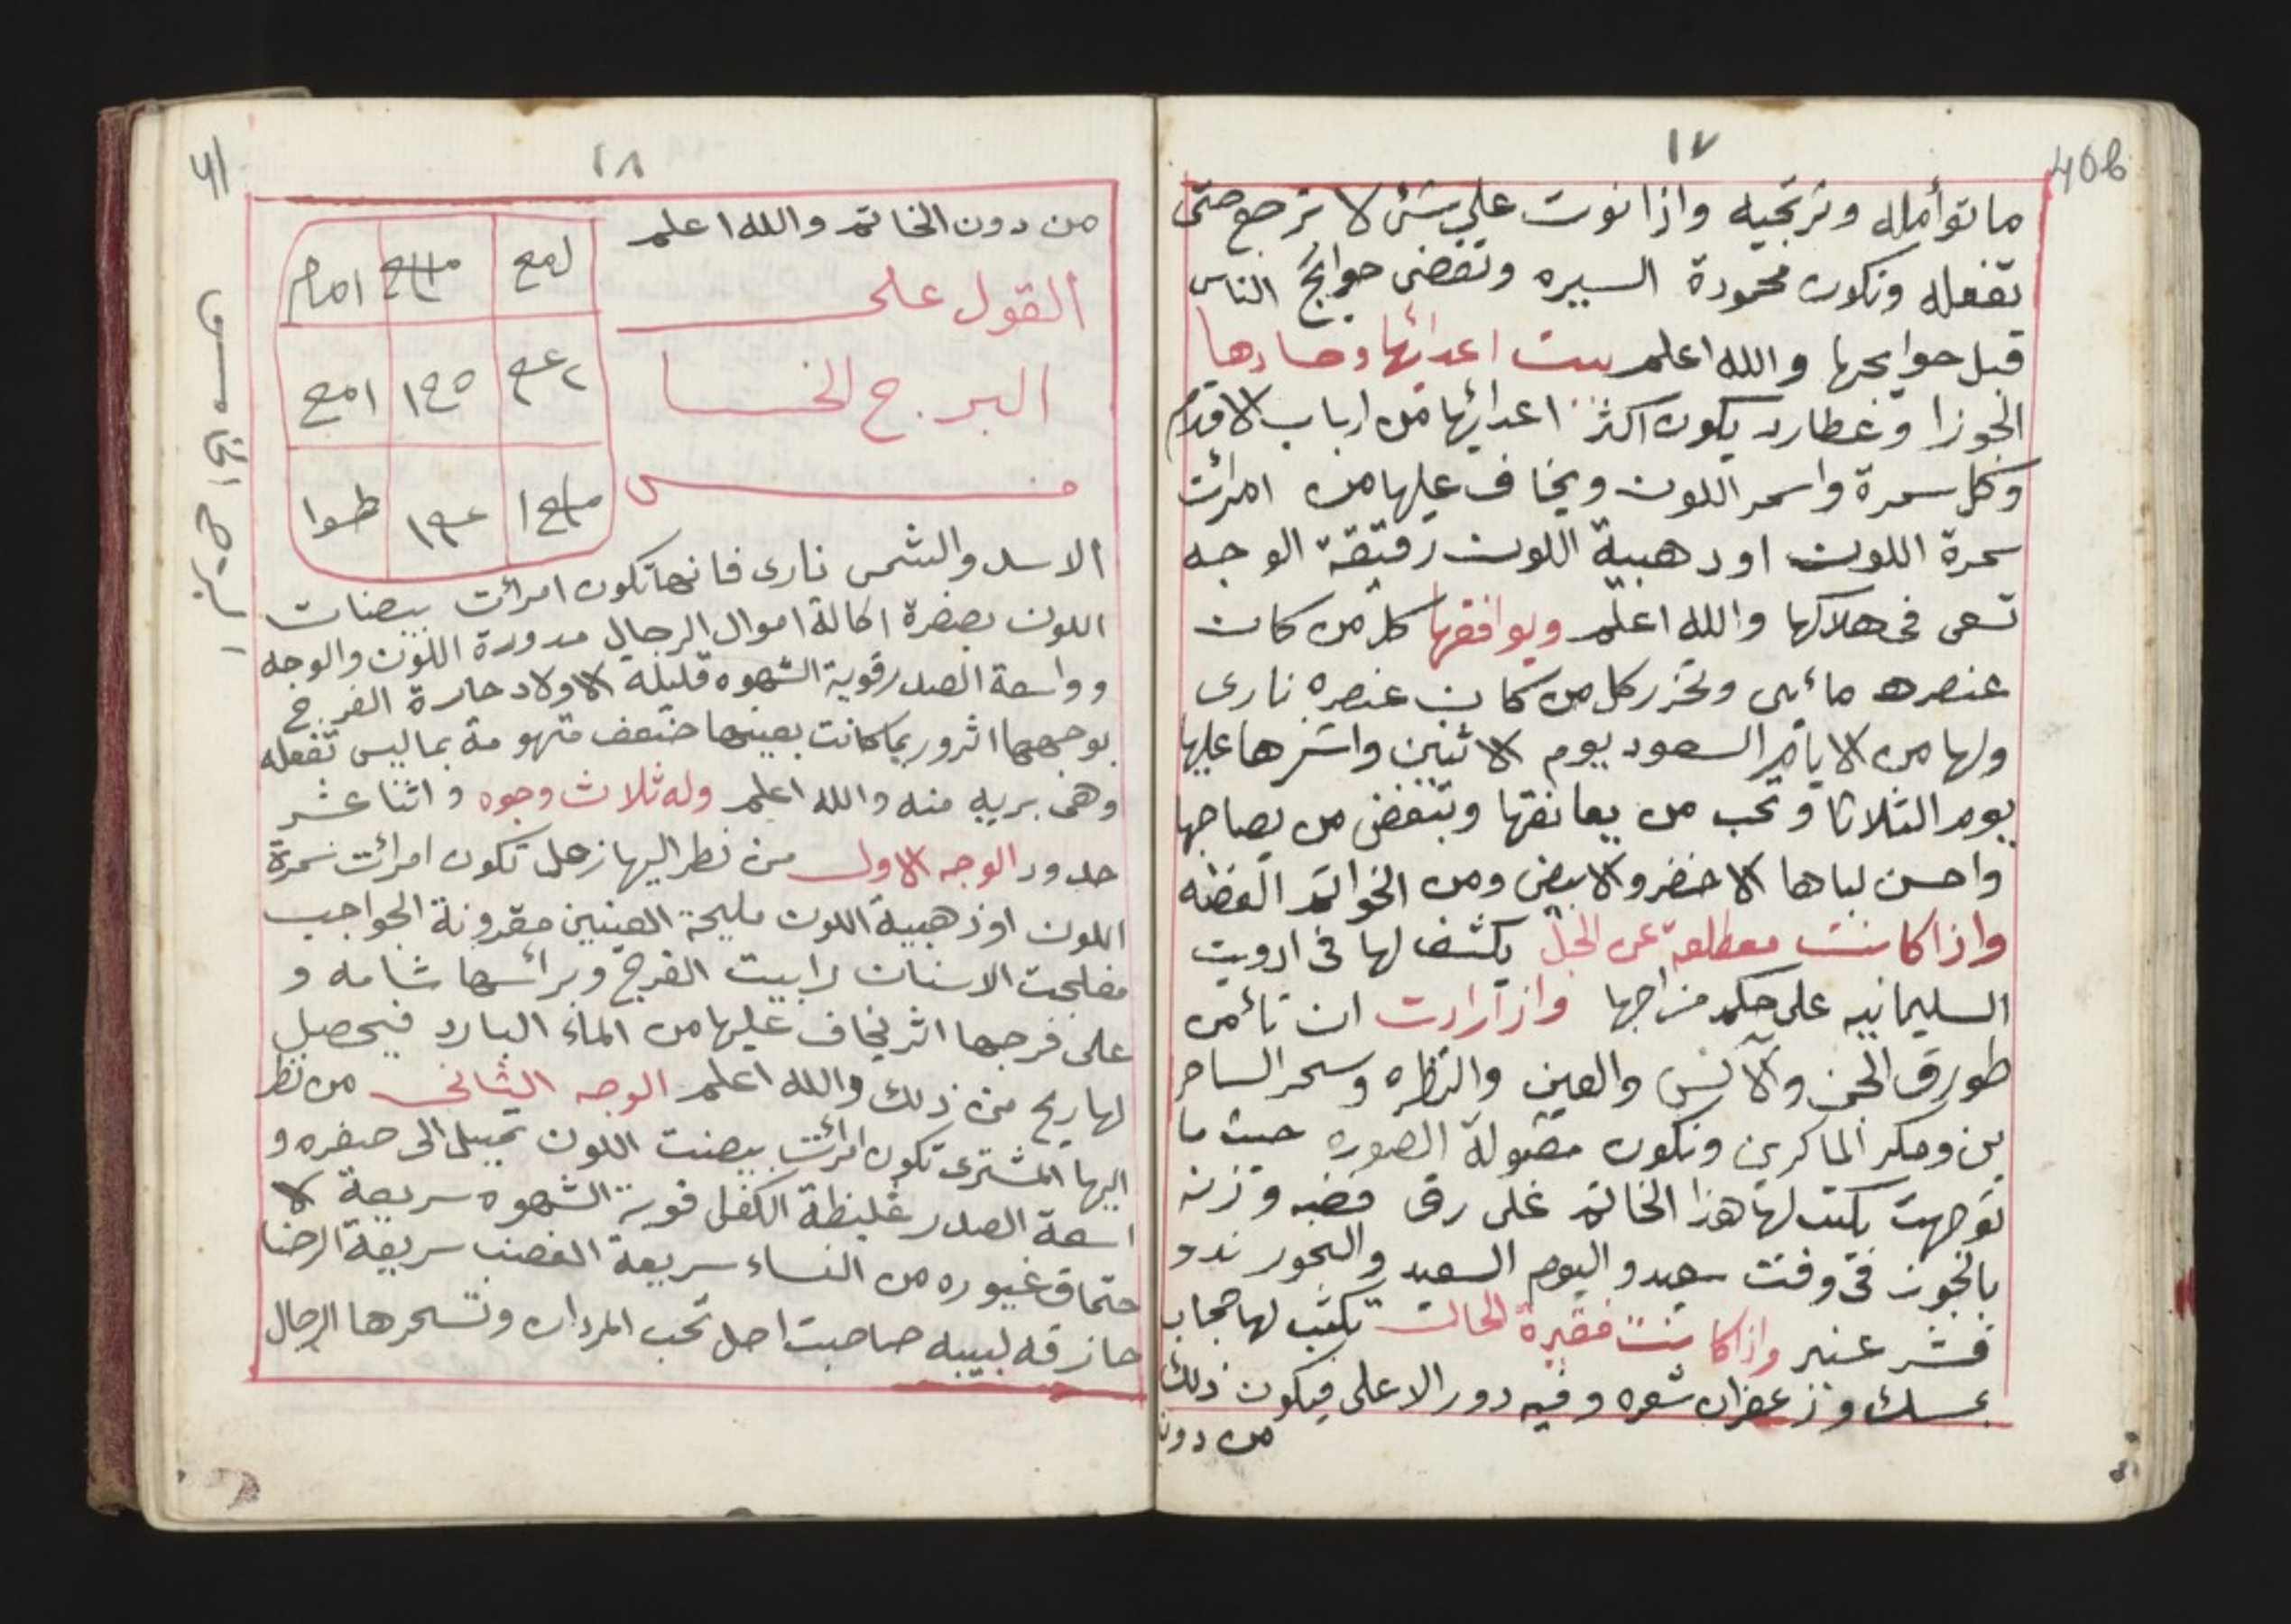 ١٧
40b
ما توأمله وترتجيه واذا نوت على شئ لا ترجع حتى
تفعله وتكون محمودة السيره وتقضى حوايج الناس
قبل حوايجها والله اعلم بيت اعدائها وحسادها
الجوزا وعطارد يكون اكثر اعدائها من ارباب الاقلام
وكل سمرة واسمر اللون ويخاف عليها من امرائت
سمرة اللون او دهبية اللون رقيقة الوجه
تسعى فى هلاكها والله اعلم ويوافقها كل من كان
عنصره مائيى وتحزر كل من كان عنصره نارى
ولها من الايام السعود يوم الاثنين واشرها عليها
يوم الثلاثا وتحب من يعانقها وتبغض من يصاحبها
واحسن لباها الاخضر والابيض ومن الخواتم الفضه
واذا كانت معطلة عن الحبل يكشف لها فى ادويت
السليمانيه على حكم مزاجها واز ارادت ان تائمن
طورق الجن والانس والعين والنظره وسحر الساحر
ين ومكر الماكرين وتكون مقبولة الصوره حيث ما
توجهت يكتب لها هذا الخاتم على رق فضه وزنه
بالجوز فى وقت سعيد و اليوم السعيد والبخور ندو
قشر عنبر واذا كانت فقيرة الحال تكتب لها حجاب
بمسك وزعفران شعره وفيه دور الاعلى فيكون ذلك
من دون
١٨
41
من دون الخاتم والله اعلم
القول على
البرج الخا
مس
لمع امام
امع ١٤٥
طسوا
الاسد والشمس نارى فانها تكون امرائت بيضات
اللون بصفرة اكالة اموال الرجال مدورة اللون والوجه
وواسعة الصدر قوية الشهوه قليلة الاولاد حارة الفرج
بوجهها اثر وربما كانت بعينها ضعف متهومة بما ليس تفعله
وهى بريه منه والله اعلم وله ثلاث وجوه واثنا عشر
حدود الوجه الاول من نظر اليها زحل تكون امرائت سمرة
اللون اوذهبية اللون مليحة العينين مقرونة الحواجب
مفلجت الاسنان رابيت الفرج وبرائسها شامه و
على فرجها اثر يخاف عليها من الماء البارد فيحصل
لها ريح من ذلك والله اعلم الوجه الثانى من نظر
اليها المشترى تكون امرائت بيضت اللون تميل الى صفره و
اسعة الصدر غليظة الكفل قوية الشهوه سريعة الا
حتماق غيوره من النساء سريعة الغضب سريعة الرضا
حازقه لبيبه صاحبت اصل تحب المردان وتسحرها الرجال